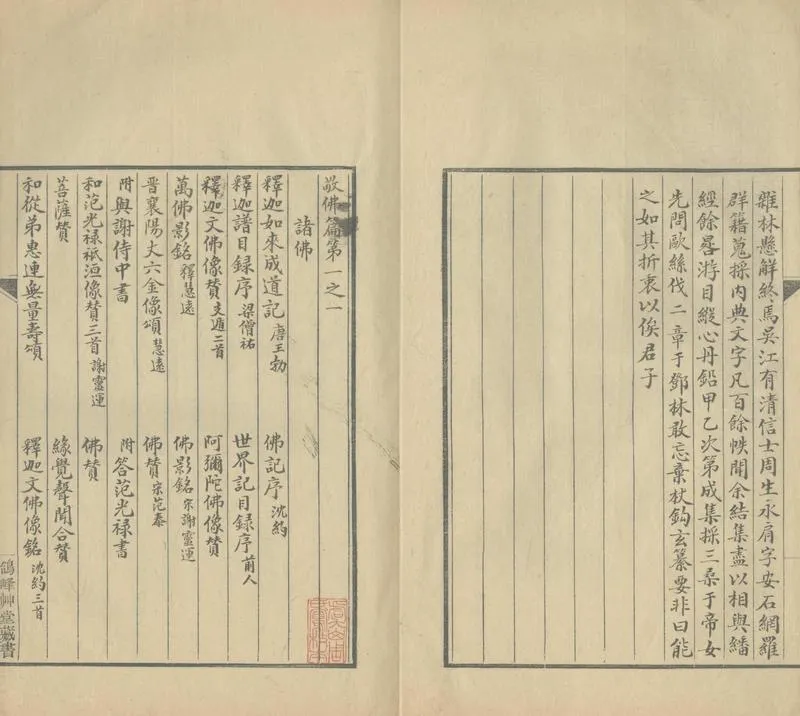 雜林懸解終焉吳江有清信士周生永肩字安石網羅
群籍蒐採内典文字凡百餘帙聞余結集盡以相與繙
經餘晷游目縱心丹鉛甲乙次第成集採三桑于帝女
先問歐絲伐二章于鄧林敢忘棄杖鈎玄纂要非曰能
之如其折衷以俟君子
敬佛篇第一之一
諸佛
釋迦如來成道記 唐王勃 佛記序 沈約
釋迦譜目録序 梁僧祐 世界記目録序 前人
釋迦文佛像贊 支遁二首 阿彌陀佛像贊
萬佛影銘 釋慧遠 佛影銘 宋謝靈運
晋襄陽丈六金像頌 慧遠 佛贊 宋范泰
附與謝侍中書 附答范光禄書
和范光禄祇洹像贊三首 謝靈運 佛贊
菩薩贊 緣覺聲聞合贊
和從弟惠連無量壽頌 釋迦文佛像銘 沈約三首
鴿峰艸堂藏書